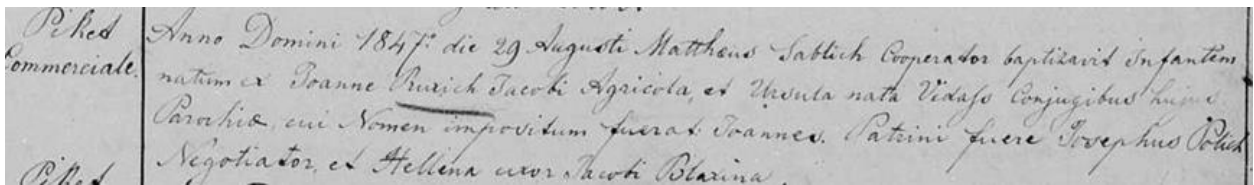 Piket
Commerciale.
Anno Domini 1847º die 29 Augusti Matthæus Sablich Cooperator baptizavit Infantem
natum ex Joanne Ruxich Jacobi Agricola, et Ursula nata Vidass Conjugibus hujus
Parochiæ, cui Nomen impositum fuerat Joannes. Patrini fuere Josephus Polich
Negotiator, et Hellena uxor Jacobi Blaxina.
Piket